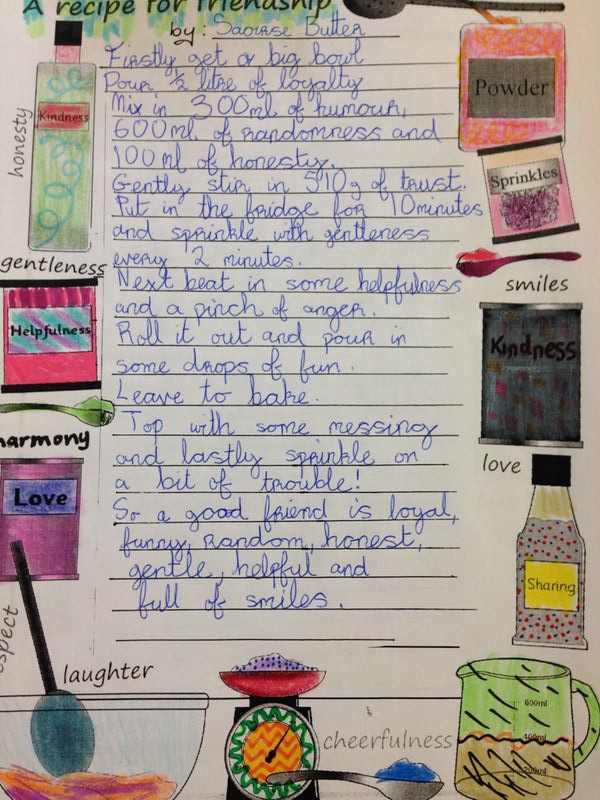 A recipe for friendship
by: Saoirse Butler
Firstly get a big bowl
Pour ½ litre of loyalty
Mix in 300ml of humour,
600ml of randomness and
100ml of honesty.
Gently stir in 510g of trust.
Put in the fridge for 10 minutes
and sprinkle with gentleness
every 2 minutes.
Next beat in some helpfulness
and a pinch of anger.
Roll it out and pour in
some drops of fun.
Leave to bake.
Top with some messing
and lastly sprinkle on
a bit of trouble!
So a good friend is loyal,
funny, random, honest,
gentle, helpful and
full of smiles.
Kindness
honesty
gentleness
Helpfulness
harmony
Love
laughter
Powder
Sprinkles
smiles
Kindness
love
Sharing
cheerfulness
600ml
400ml
200ml